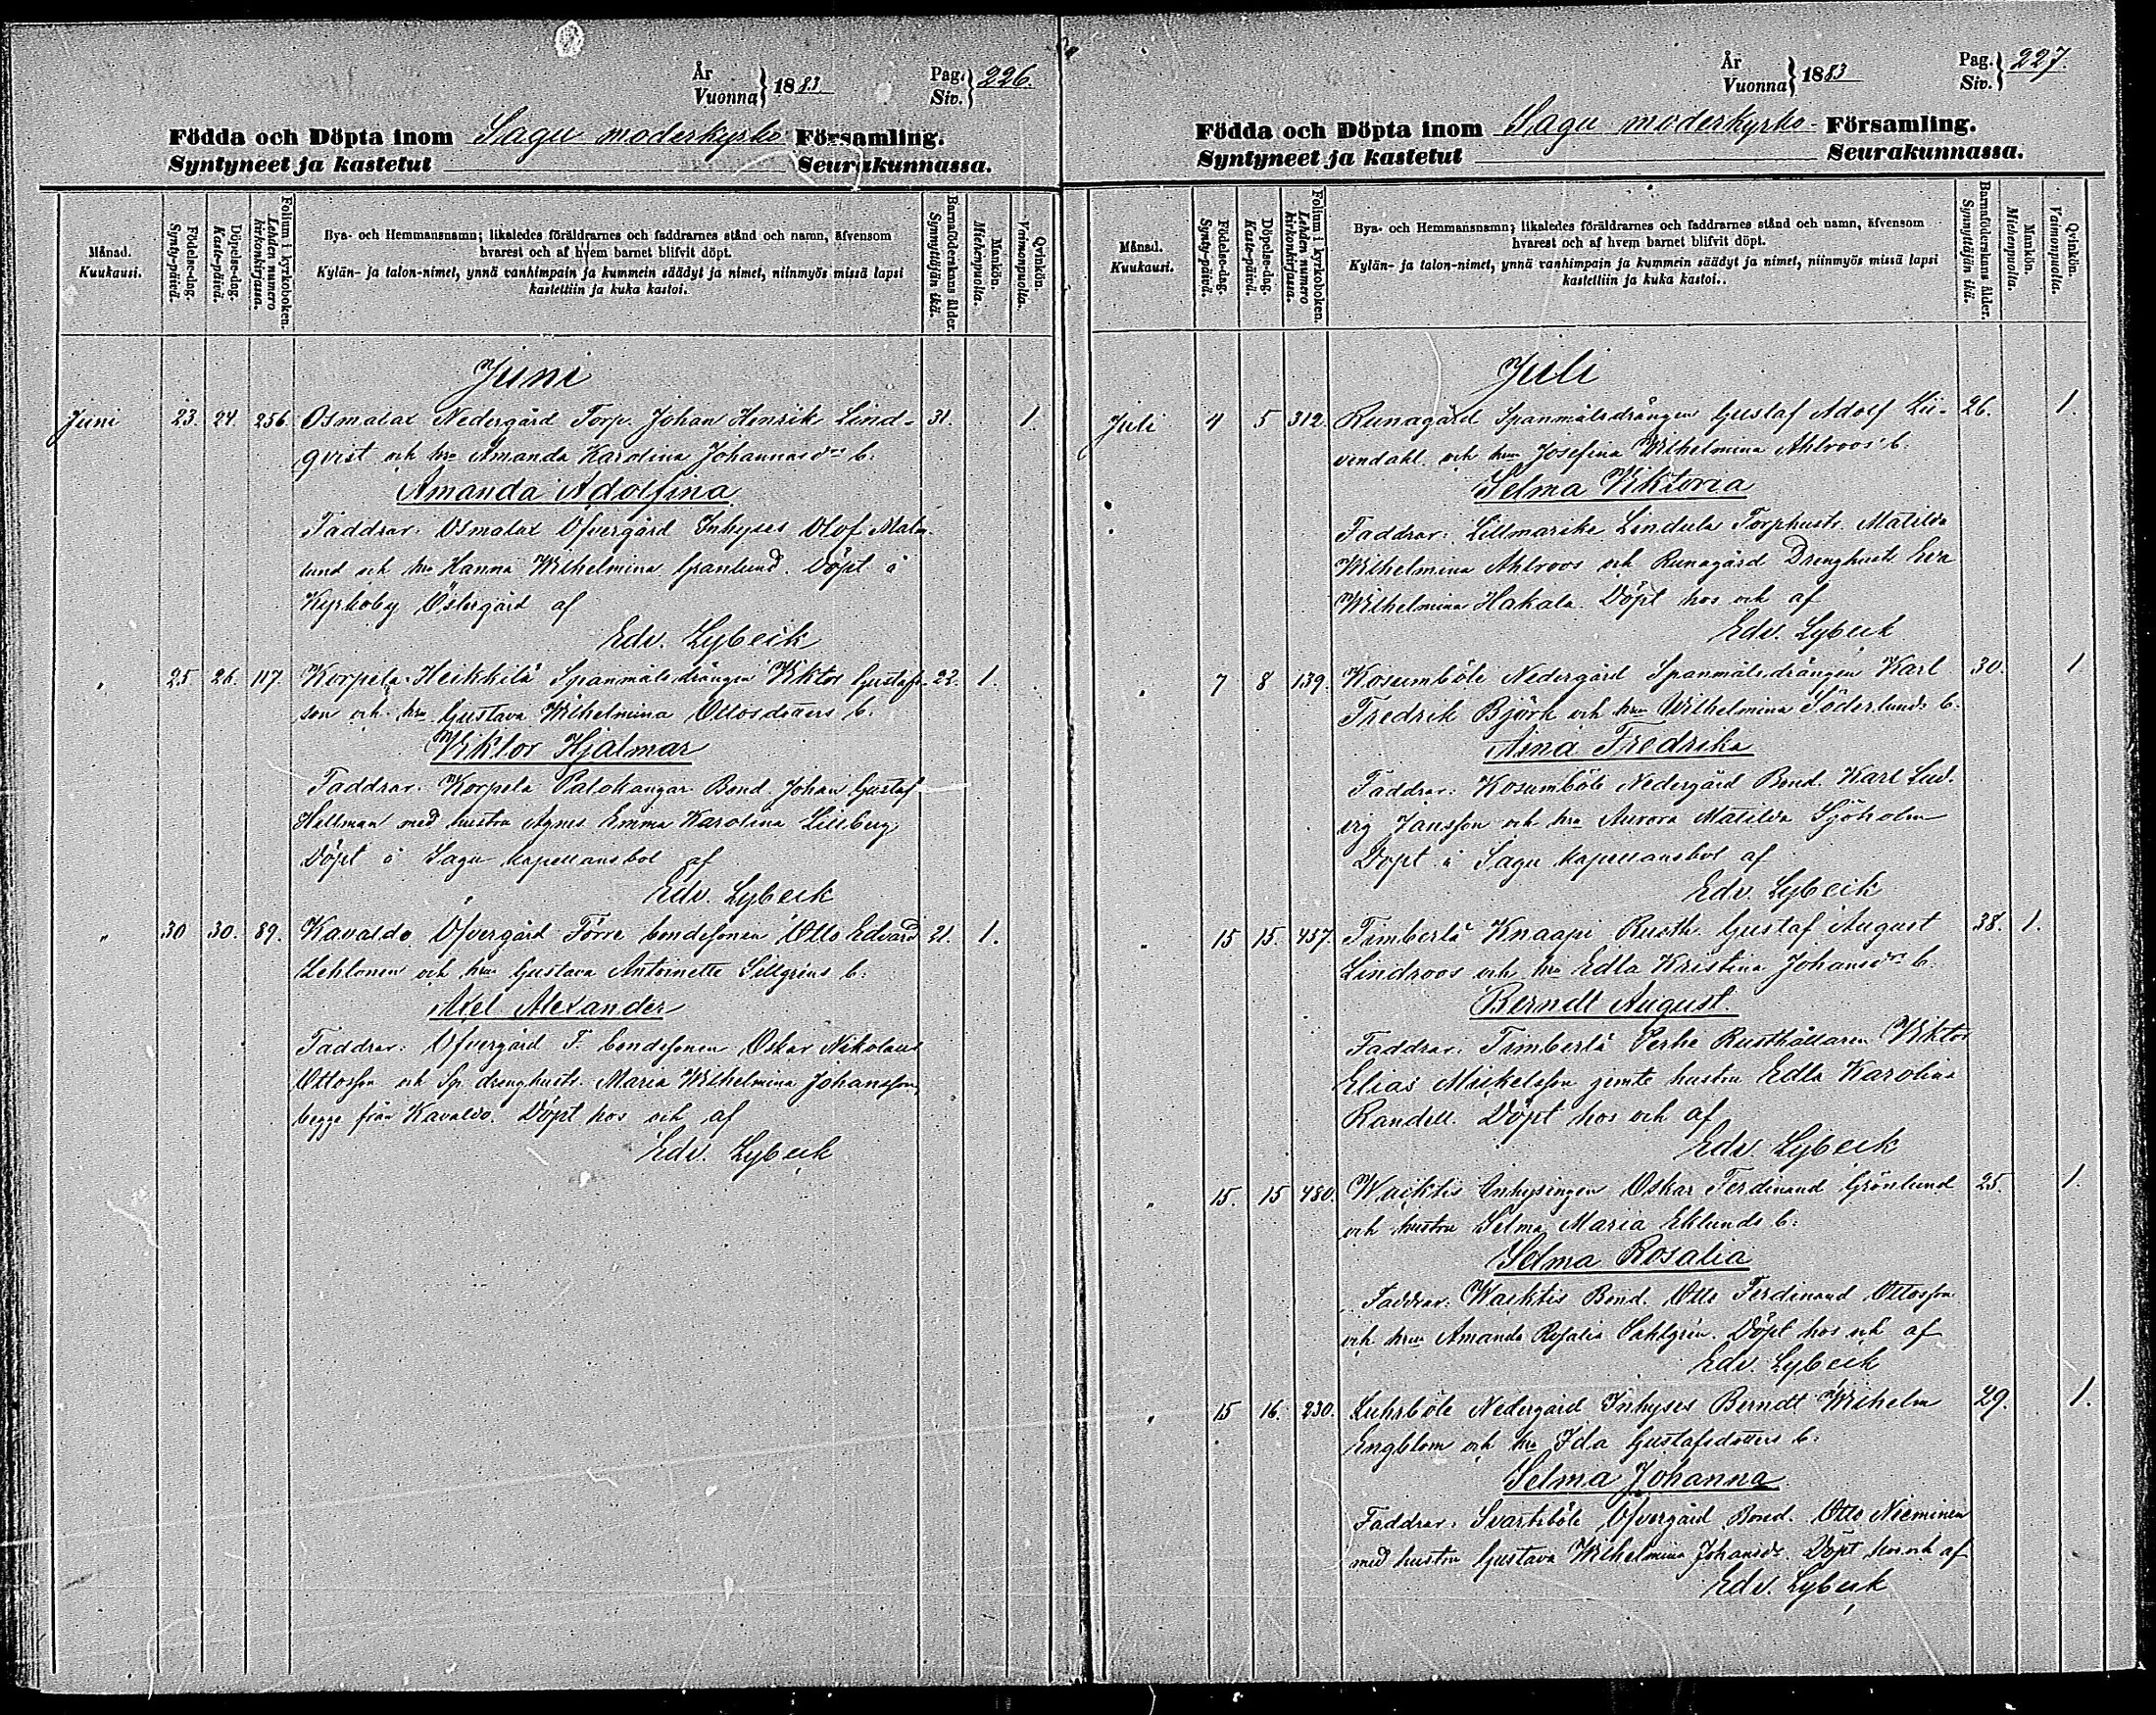 År
Vuonna } 1883
Pag.
Siv. } 226.
Födda och Döpta inom Sagu moderkyrko Församling.
Syntyneet ja kastetut Seurakunnassa.
Månad.
Kuukausi.
Födelse-dag.
Synty-päivä.
Döpelse-dag.
Kaste-päivä.
Folium i kyrkoboken.
Lehden numero kirkonkirjassa.
Bya- och Hemmansnamn; likaledes föräldrarnes och faddrarnes stånd och namn, äfvensom
hvarest och af hvem barnet blifvit döpt.
Kylän- ja talon-nimet, ynnä vanhimpain ja kummein säädyt ja nimet, niinmyös missä lapsi
kastettiin ja kuka kastoi.
Barnaföderskans ålder.
Synnyttäjän ikä.
Mankön.
Miehenpuolia.
Qvinkön.
Vaimonpuolia.
Juni
Juni 23. 24. 256. Osmalax Nedergård Torp. Johan Henrik Lind- 31. 1.
qvist och hu Amanda Karolina Johannsdr b.
Amanda Adolfina
Faddrar: Osmalax Öfvergård Inhyses Olof Malm-
lund och hu Hanna Wilhelmina Granlund. Döpt å
Kyrkoby Östergård af
Edv. Lybeck
" 25 26. 117. Korpela Heikkilä Spanmålsdrängen Viktor Gustafs- 22. 1.
son och hu Gustava Wilhelmina Ottosdotters b.
Viktor Hjalmar
Faddrar: Korpela Palokangar Bond. Johan Gustaf
Hallman med hustru Agnes Emma Karolina Lillberg
Döpt å Sagu kapellansbol af
Edv. Lybeck
" 30 30. 89. Kavaldo Öfvergård Förre bondesonen Otto Edvard 21. 1.
Lehtonen och hu Gustava Antoinette Sillgréns b:
Axel Alexander
Faddrar: Öfvergård F. bondesonen Oskar Nikolaus
Ottosson och Sp. dränghustr. Maria Wilhelmina Johansson,
begge från Kavaldo. Döpt hos och af
Edv. Lybeck
År
Vuonna } 1883
Pag.
Siv. } 227.
Födda och Döpta inom Sagu moderkyrko- Församling.
Syntyneet ja kastetut Seurakunnassa.
Månad.
Kuukausi.
Födelse-dag.
Synty-päivä.
Döpelse-dag.
Kaste-päivä.
Folium i kyrkoboken.
Lehden numero kirkonkirjassa.
Bya- och Hemmansnamn; likaledes föräldrarnes och faddrarnes stånd och namn, äfvensom
hvarest och af hvem barnet blifvit döpt.
Kylän- ja talon-nimet, ynnä vanhimpain ja kummein säädyt ja nimet, niinmyös missä lapsi
kastettiin ja kuka kastoi.
Barnaföderskans ålder.
Synnyttäjän ikä.
Mankön.
Miehenpuolia.
Qvinkön.
Vaimonpuolia.
Juli
Juli 4 5 312. Runagård Spanmålsdrängen Gustaf Adolf Lü- 26. 1.
vendahl och hu Josefina Wilhelmina Ahlroos' b.
Selma Viktoria
Faddrar: Lillmarike Lindula Torphustr. Matilda
Wilhelmina Ahlroos och Runagård Dränghustr. Eva
Wilhelmina Hakala. Döpt hos och af
Edv. Lybeck
" 7 8 139. Kosumböle Nedergård Spanmålsdrängen Karl 30. 1
Fredrik Björk och hu Wilhelmina Söderlunds b.
Aina Fredrika
Faddrar: Kosumböle Nedergård Bond. Karl Lud-
vig Jansson och hu Aurora Matilda Sjöholm
Döpt å Sagu kapellansbol af
Edv. Lybeck
" 15 15. 457. Timberlä Knaapi Rusth. Gustaf August 38. 1.
Lindroos och hu Edla Kristina Johansdr b.
Berndt August.
Faddrar: Timberlä Perhe Rusthållaren Viktor
Elias Mickelsson jemte hustru Edla Karolina
Randell. Döpt hos och af
Edv. Lybeck
" 15. 15 480. Waiktis Inhysingen Oskar Ferdinand Grönlund 25. 1.
och hustru Selma Maria Eklunds b:
Selma Rosalia
Faddrar: Waiktis Bond. Otto Ferdinand Ottosson
och hu Amanda Rosalia Dahlgrén. Döpt hos och af
Edv. Lybeck
" 15 16. 230. Luhrböle Nedergård Inhyses Berndt Wilhelm 29. 1.
Engblom och hu Ida Gustafsdotters b:
Selma Johanna
Faddrar: Svartböle Öfvergård Bond. Otto Nieminen
med hustru Gustava Wilhelmina Johansdr. Döpt hos och af
Edv. Lybeck